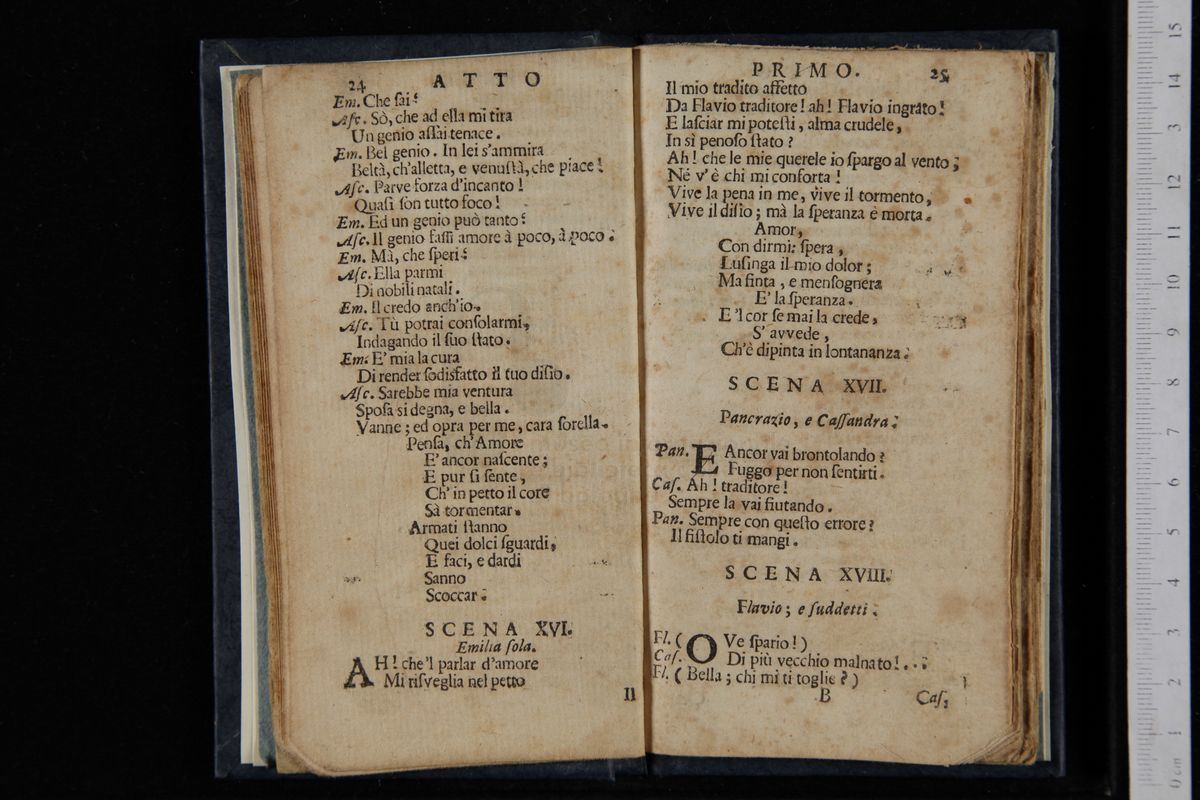 24 ATTO
Em. Che fai?
Aſc. Sò, che ad ella mi tira
Un genio aſſai tenace.
Em. Bel genio. In lei s'ammira
Beltà, ch'alletta, e venuſtà, che piace!
Aſc. Parve forza d'incanto!
Quaſi ſon tutto foco!
Em. Ed un genio può tanto?
Aſc. Il genio faſſi amore à poco, à poco.
Em. Mà, che ſperi?
Aſc. Ella parmi
Di nobili natali.
Em. Il credo anch'io.
Aſc. Tù potrai conſolarmi,
Indagando il ſuo ſtato.
Em. E' mia la cura
Di render ſodisfatto il tuo diſio.
Aſc. Sarebbe mia ventura
Spoſa sì degna, e bella.
Vanne; ed opra per me, cara ſorella.
Penſa, ch'Amore
E' ancor naſcente;
E pur ſi ſente,
Ch' in petto il core
Sà tormentar.
Armati ſtanno
Quei dolci ſguardi,
E faci, e dardi
Sanno
Scoccar.
SCENA XVI.
Emilia ſola.
AH! che'l parlar d'amore
Mi riſveglia nel petto
Il
PRIMO. 25
Il mio tradito affetto
Da Flavio traditore! ah! Flavio ingrato!
E laſciar mi poteſti, alma crudele,
In sì penoſo ſtato?
Ah! che le mie querele io ſpargo al vento;
Nè v'è chi mi conforta!
Vive la pena in me, vive il tormento,
Vive il diſio; mà la ſperanza è morta.
Amor,
Con dirmi: ſpera,
Luſinga il mio dolor;
Ma finta, e menſognera
E' la ſperanza.
E 'l cor ſe mai la crede,
S' avvede,
Ch'è dipinta in lontananza.
SCENA XVII.
Pancrazio, e Caſſandra.
Pan. E Ancor vai brontolando?
Fuggo per non ſentirti.
Caſ. Ah! traditore!
Sempre la vai fiutando.
Pan. Sempre con queſto errore?
Il fiſtolo ti mangi.
SCENA XVIII.
Flavio; e ſuddetti.
Fl. (OVe ſpario!)
Caſ. Di più vecchio malnato!...
Fl. (Bella; chi mi ti toglie?)
B Caſ.